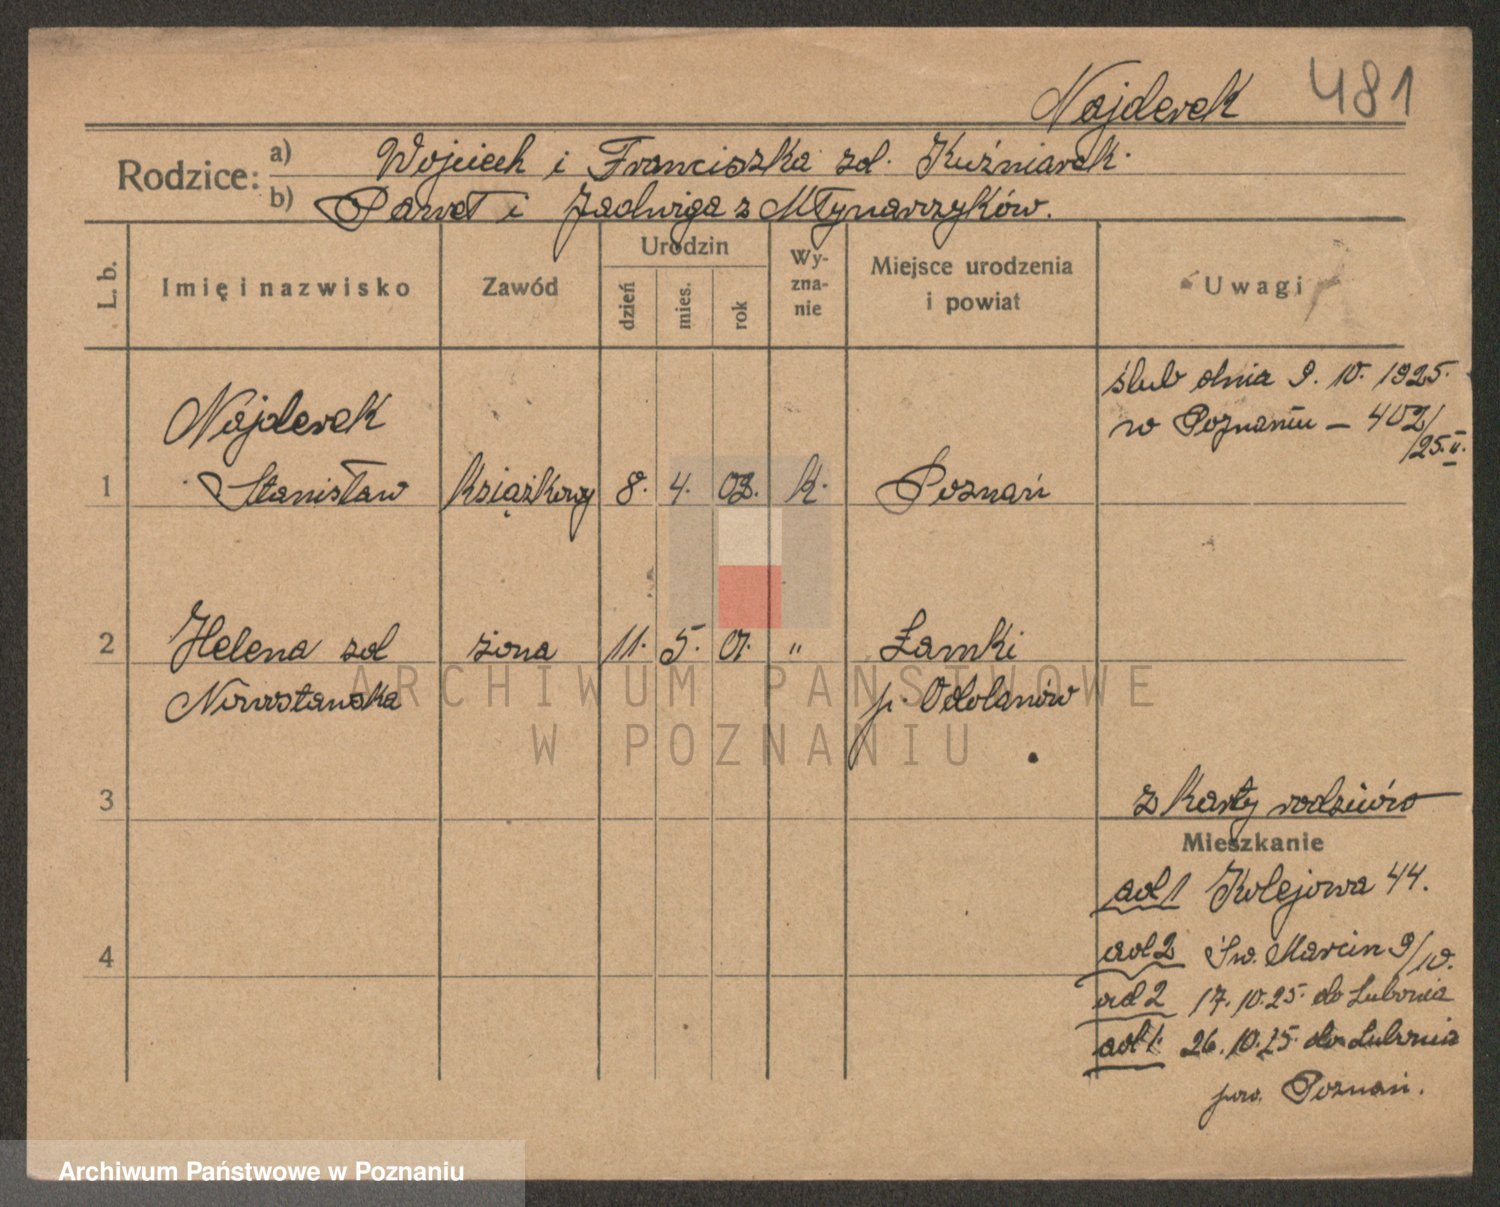 Najderek 481
Rodzice: a) Wojciech i Franciszka zd. Kuźniarek.
b) Paweł i Jadwiga z Młynarzyków.
L. b. Imię i nazwisko Zawód Urodzin dzień mies. rok Wy-zna-nie Miejsce urodzenia i powiat Uwagi
ślub dnia 9. 10. 1925.
w Poznaniu – 402/25.II.
Najderek
1 Stanisław książkowy 8. 4. 03. k. Poznań
2 Helena zd żona 11. 5. 01. " Łamki
Nowostawska p. Odolanów
ARCHIWUM PAŃSTWOWE
W POZNANIU
3 z karty rodziców
Mieszkanie
ad 1 Kolejowa 44.
4 ad 2 Św. Marcin 9/10.
ad 2 17. 10. 25. do Lubonia
ad 1. 26. 10. 25. do Lubonia
pow. Poznań.
Archiwum Państwowe w Poznaniu